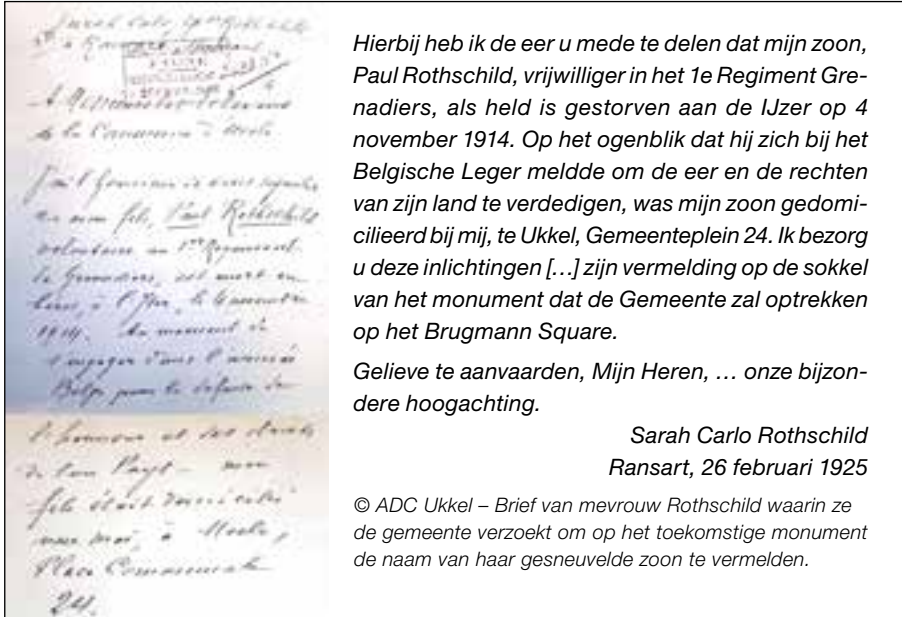 Sarah Carlo Rothschild
à Ransart
A Messieurs
de la Commune à Uccle
J'ai l'honneur de vous
que mon fils, Paul Rothschild
volontaire au 1er Régiment
de Grenadiers, est mort en
héros, à l'Yser, le 4 novembre
1914. Au moment de
s'engager dans l'armée
Belge pour la défense de
l'honneur et des droits
de son Pays — mon
fils était domicilié
chez moi, à Uccle,
Place Communale
24.
Hierbij heb ik de eer u mede te delen dat mijn zoon,
Paul Rothschild, vrijwilliger in het 1e Regiment Gre-
nadiers, als held is gestorven aan de IJzer op 4
november 1914. Op het ogenblik dat hij zich bij het
Belgische Leger meldde om de eer en de rechten
van zijn land te verdedigen, was mijn zoon gedomi-
cilieerd bij mij, te Ukkel, Gemeenteplein 24. Ik bezorg
u deze inlichtingen […] zijn vermelding op de sokkel
van het monument dat de Gemeente zal optrekken
op het Brugmann Square.
Gelieve te aanvaarden, Mijn Heren, … onze bijzon-
dere hoogachting.
Sarah Carlo Rothschild
Ransart, 26 februari 1925
© ADC Ukkel – Brief van mevrouw Rothschild waarin ze
de gemeente verzoekt om op het toekomstige monument
de naam van haar gesneuvelde zoon te vermelden.